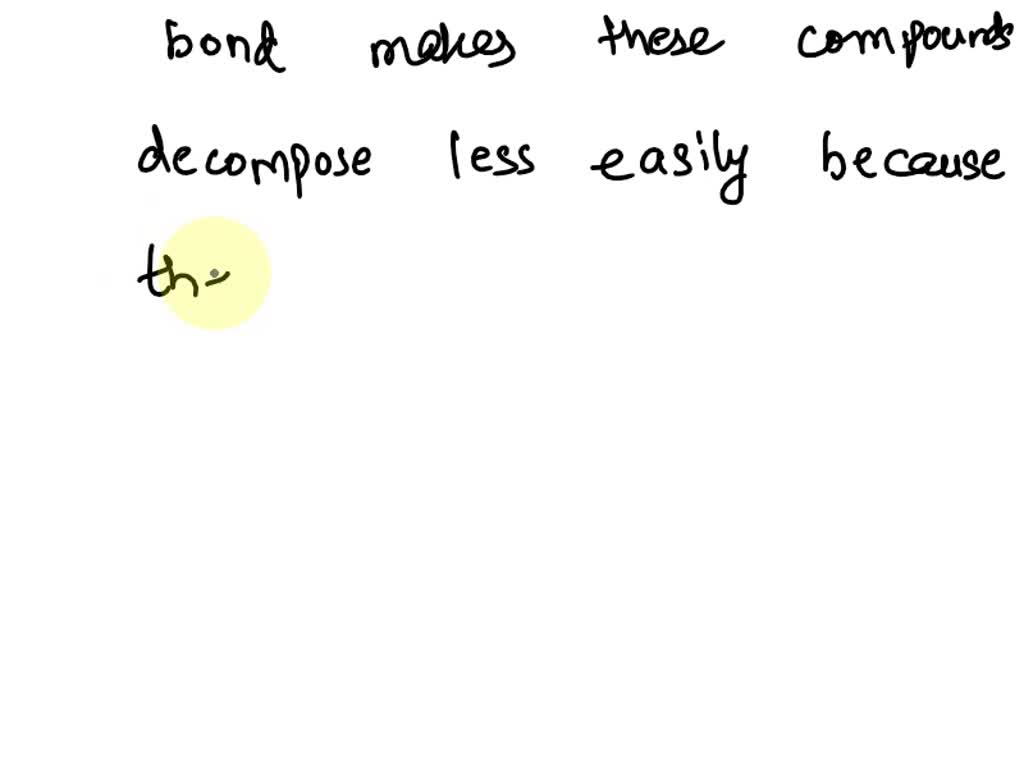 bond makes these compounds
decompose less easily because
th